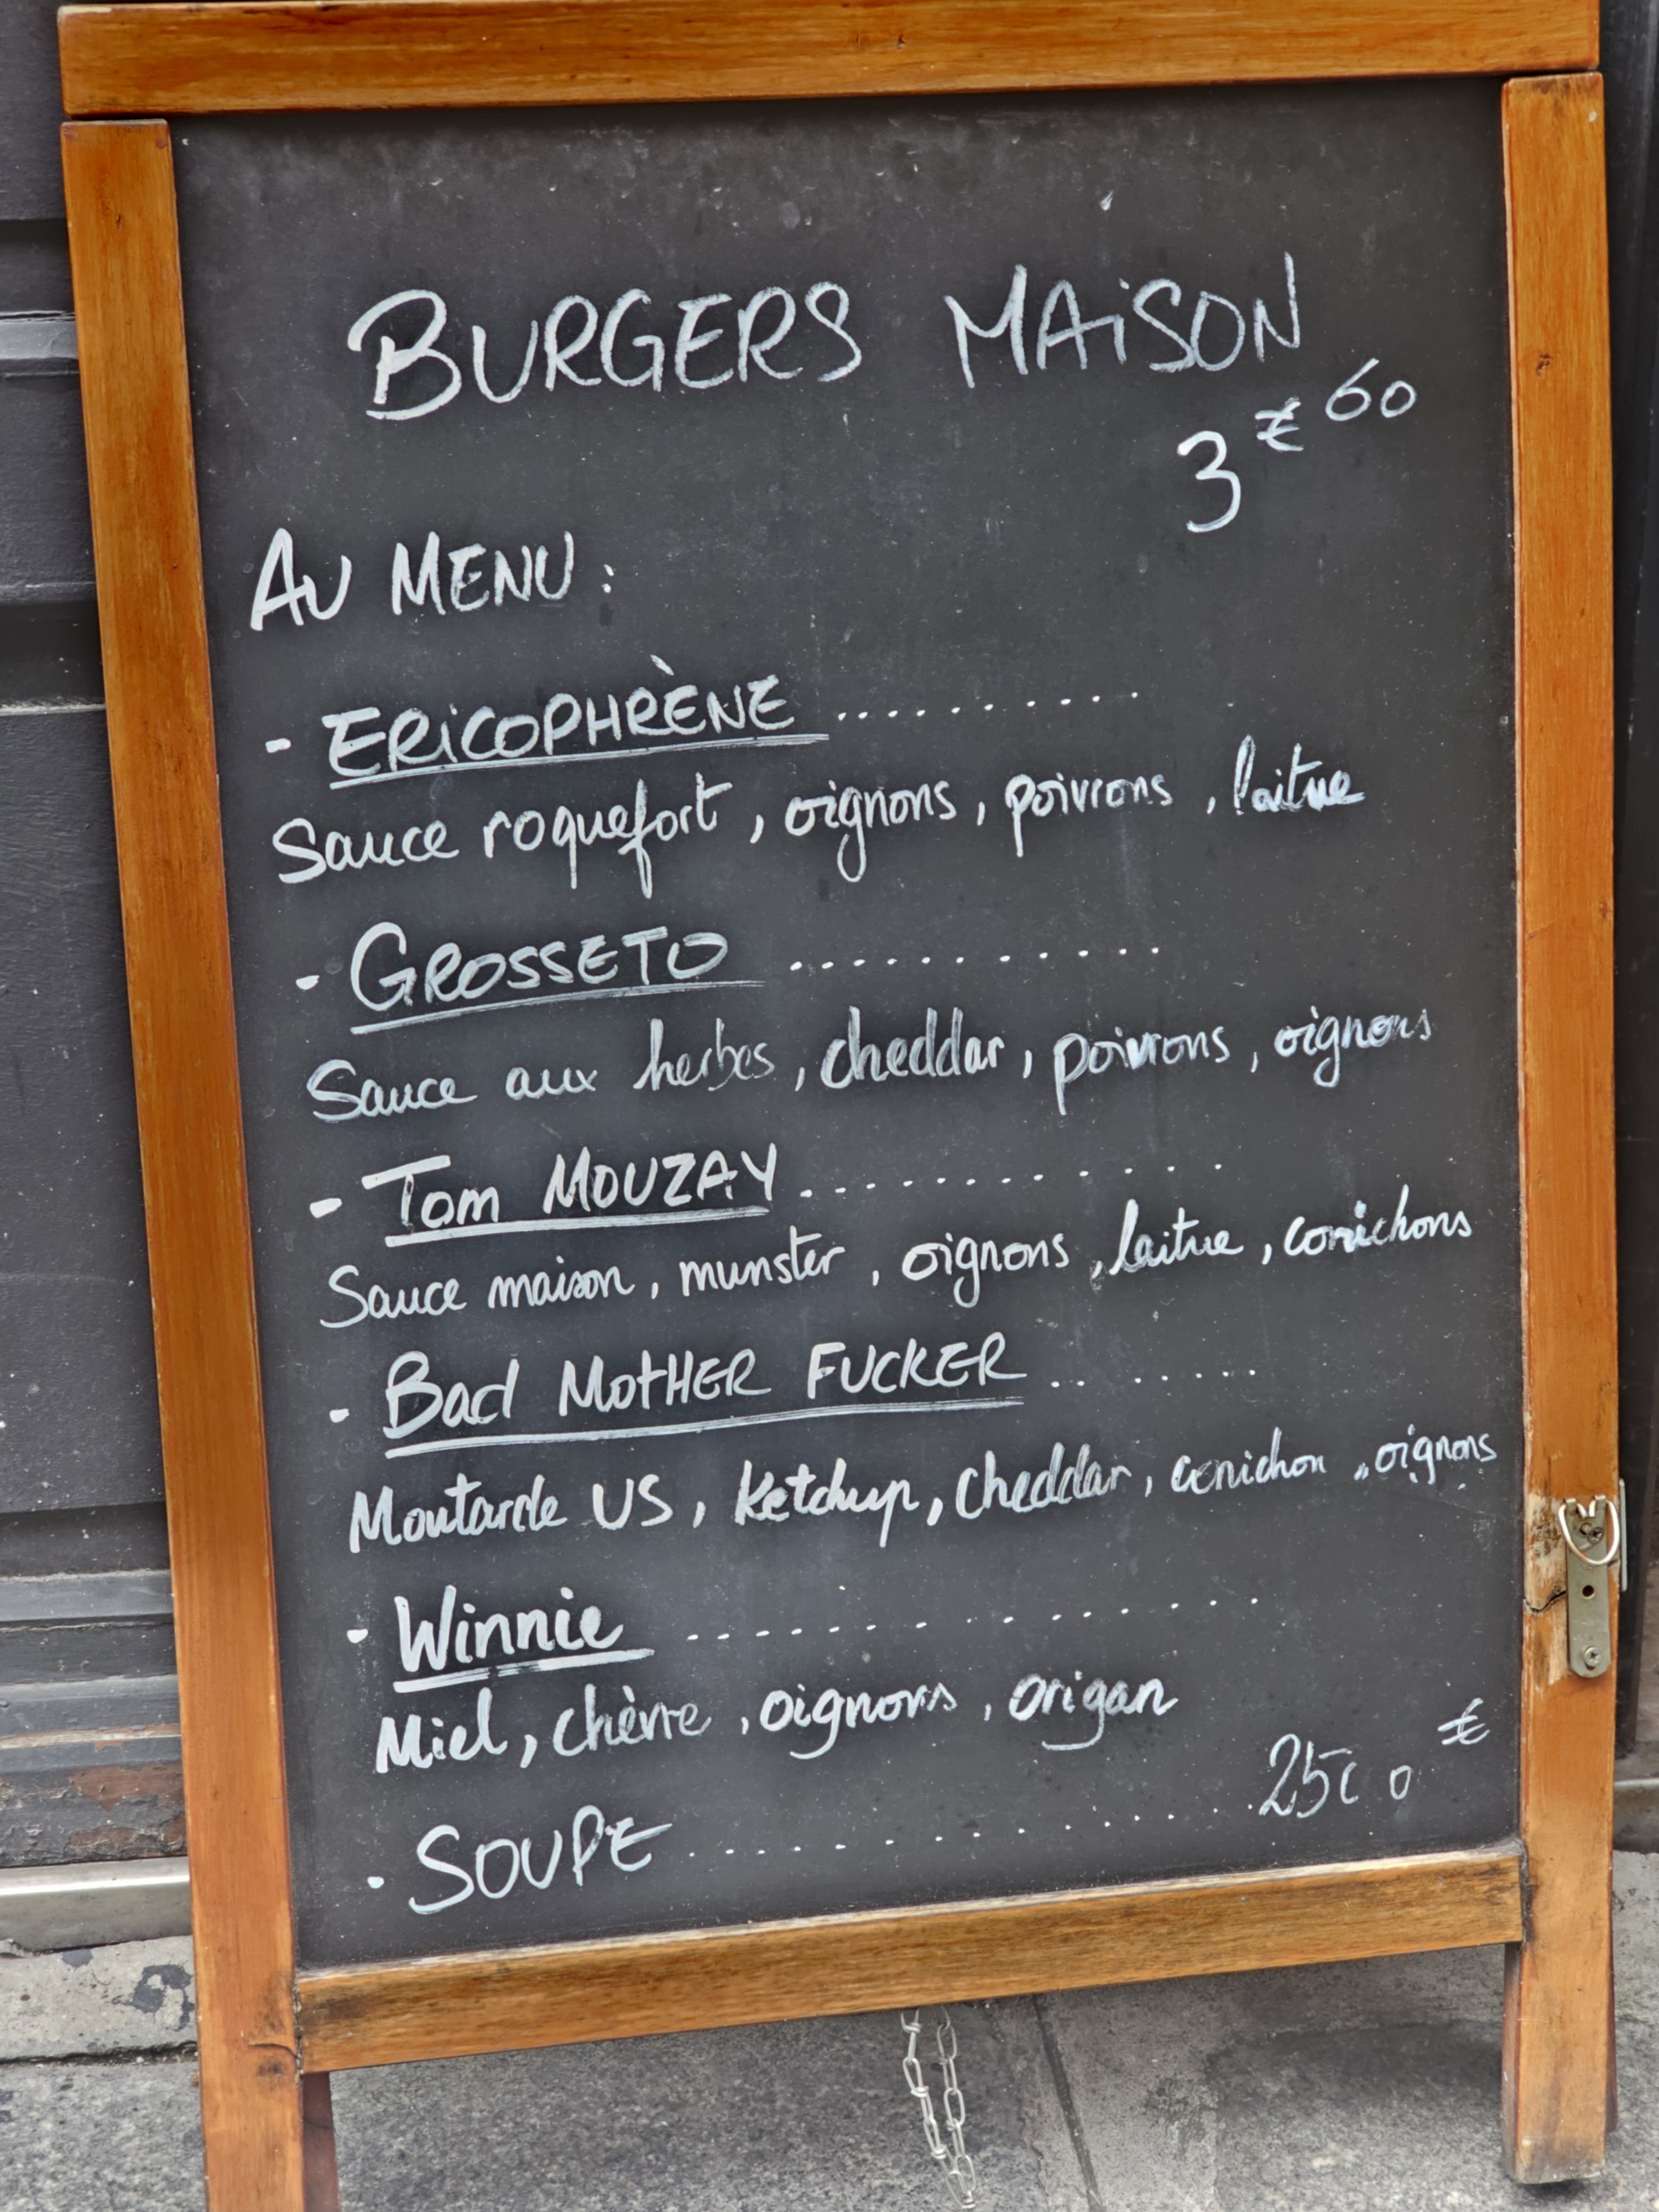 BURGERS MAiSON
3 € 60
AU MENU :
- ERiCOPHRÈNE ..........
Sauce roquefort, oignons, poivrons, laitue
- GROSSETO ..........
Sauce aux herbes, cheddar, poivrons, oignons
- Tom MOUZAY ...........
Sauce maison, munster, oignons, laitue, cornichons
- Bad MOTHER FUCKER ........
Moutarde US, Ketchup, cheddar, cornichon, oignons
- Winnie .............
Miel, chèvre, oignons, origan
- SOUPE ............ €